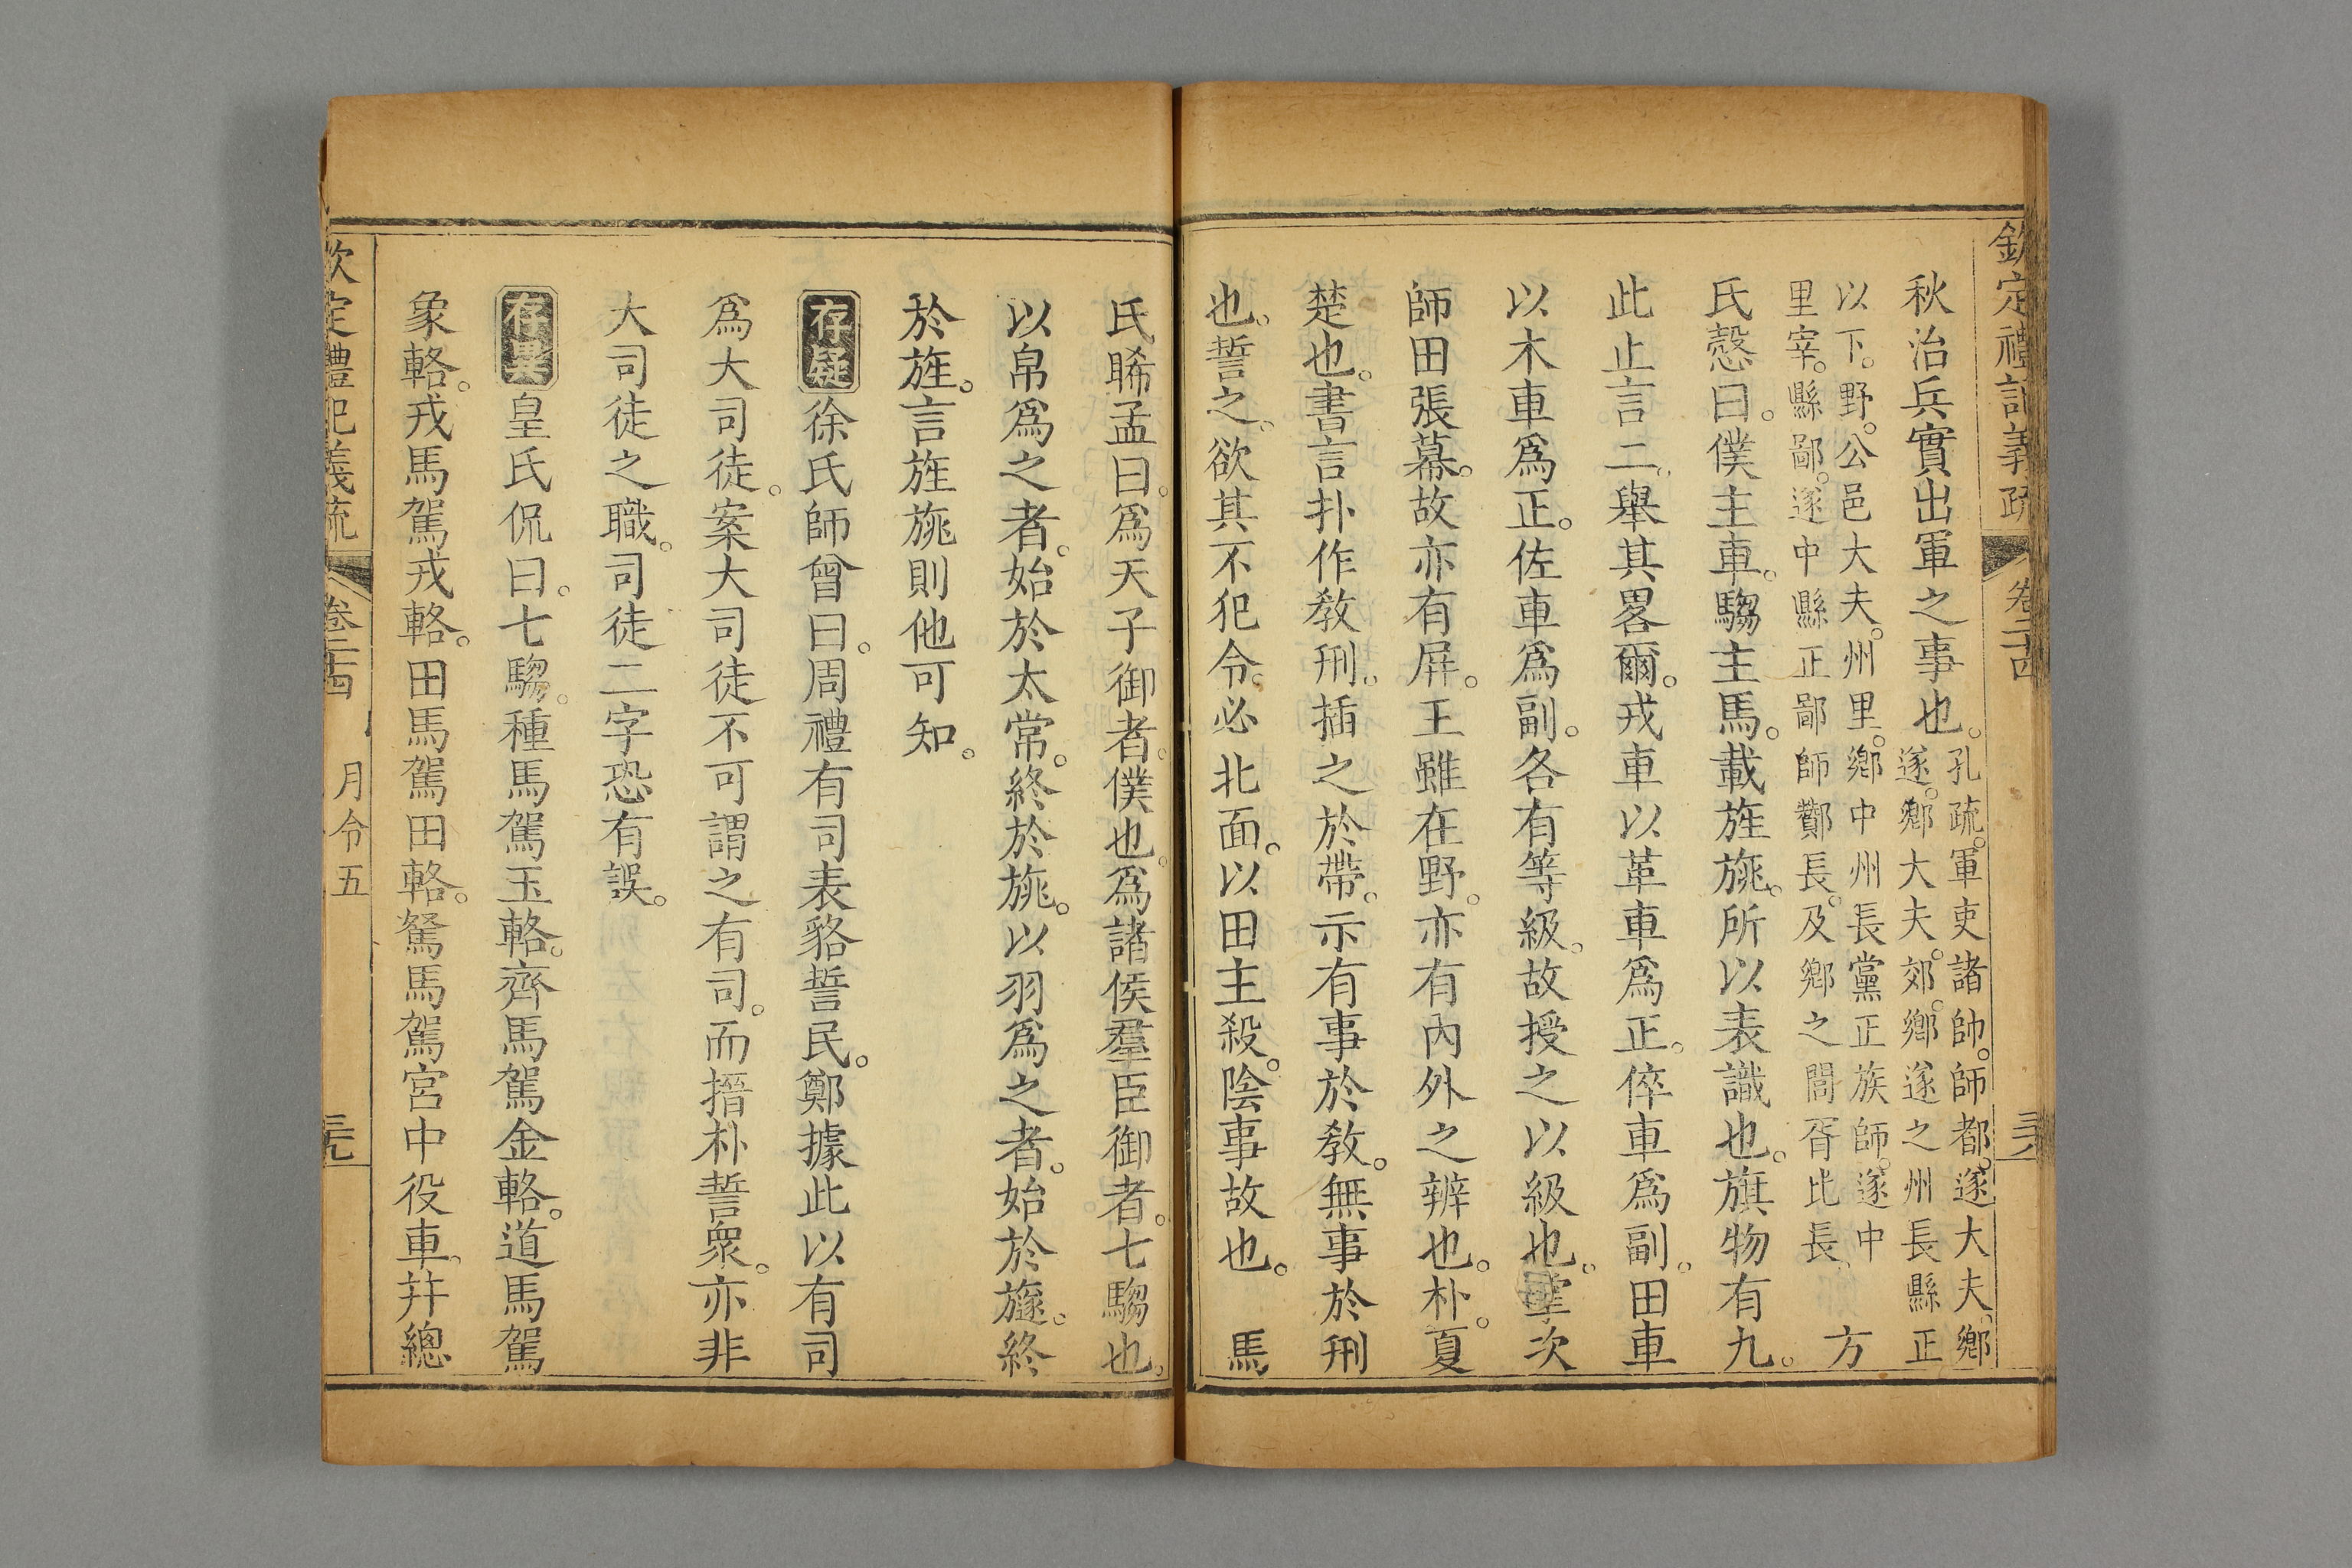 欽定禮記義疏 卷二十四
秋治兵實出軍之事也。孔疏。軍吏諸帥。師都。遂大夫。鄉
遂。鄉大夫。郊。鄉遂之州長縣正
以下。野。公邑大夫。州里。鄉中州長黨正族師。遂中
里宰。縣鄙。遂中縣正鄙師酇長。及鄉之閭胥比長。方
氏慤曰。僕主車。騶主馬。載旌旐。所以表識也。旗物有九。
此止言二。舉其畧爾。戎車以革車爲正。倅車爲副。田車
以木車爲正。佐車爲副。各有等級。故授之以級也。掌次
師田張幕。故亦有屏。王雖在野。亦有內外之辨也。朴。夏
楚也。書言扑作敎刑。插之於帶。示有事於敎。無事於刑
也。誓之。欲其不犯令。必北面。以田主殺。陰事故也。 馬
氏睎孟曰。爲天子御者。僕也。爲諸侯羣臣御者。七騶也。
以帛爲之者。始於太常。終於旐。以羽爲之者。始於旞。終
於旌。言旌旐則他可知。
存疑 徐氏師曾曰。周禮有司表貉誓民。鄭據此以有司
爲大司徒。案大司徒不可謂之有司。而搢朴誓衆。亦非
大司徒之職。司徒二字恐有誤。
存異 皇氏侃曰。七騶。種馬駕玉輅。齊馬駕金輅。道馬駕
象輅。戎馬駕戎輅。田馬駕田輅。駑馬駕宮中役車。幷總
欽定禮記義疏 卷二十四 月令五 三九